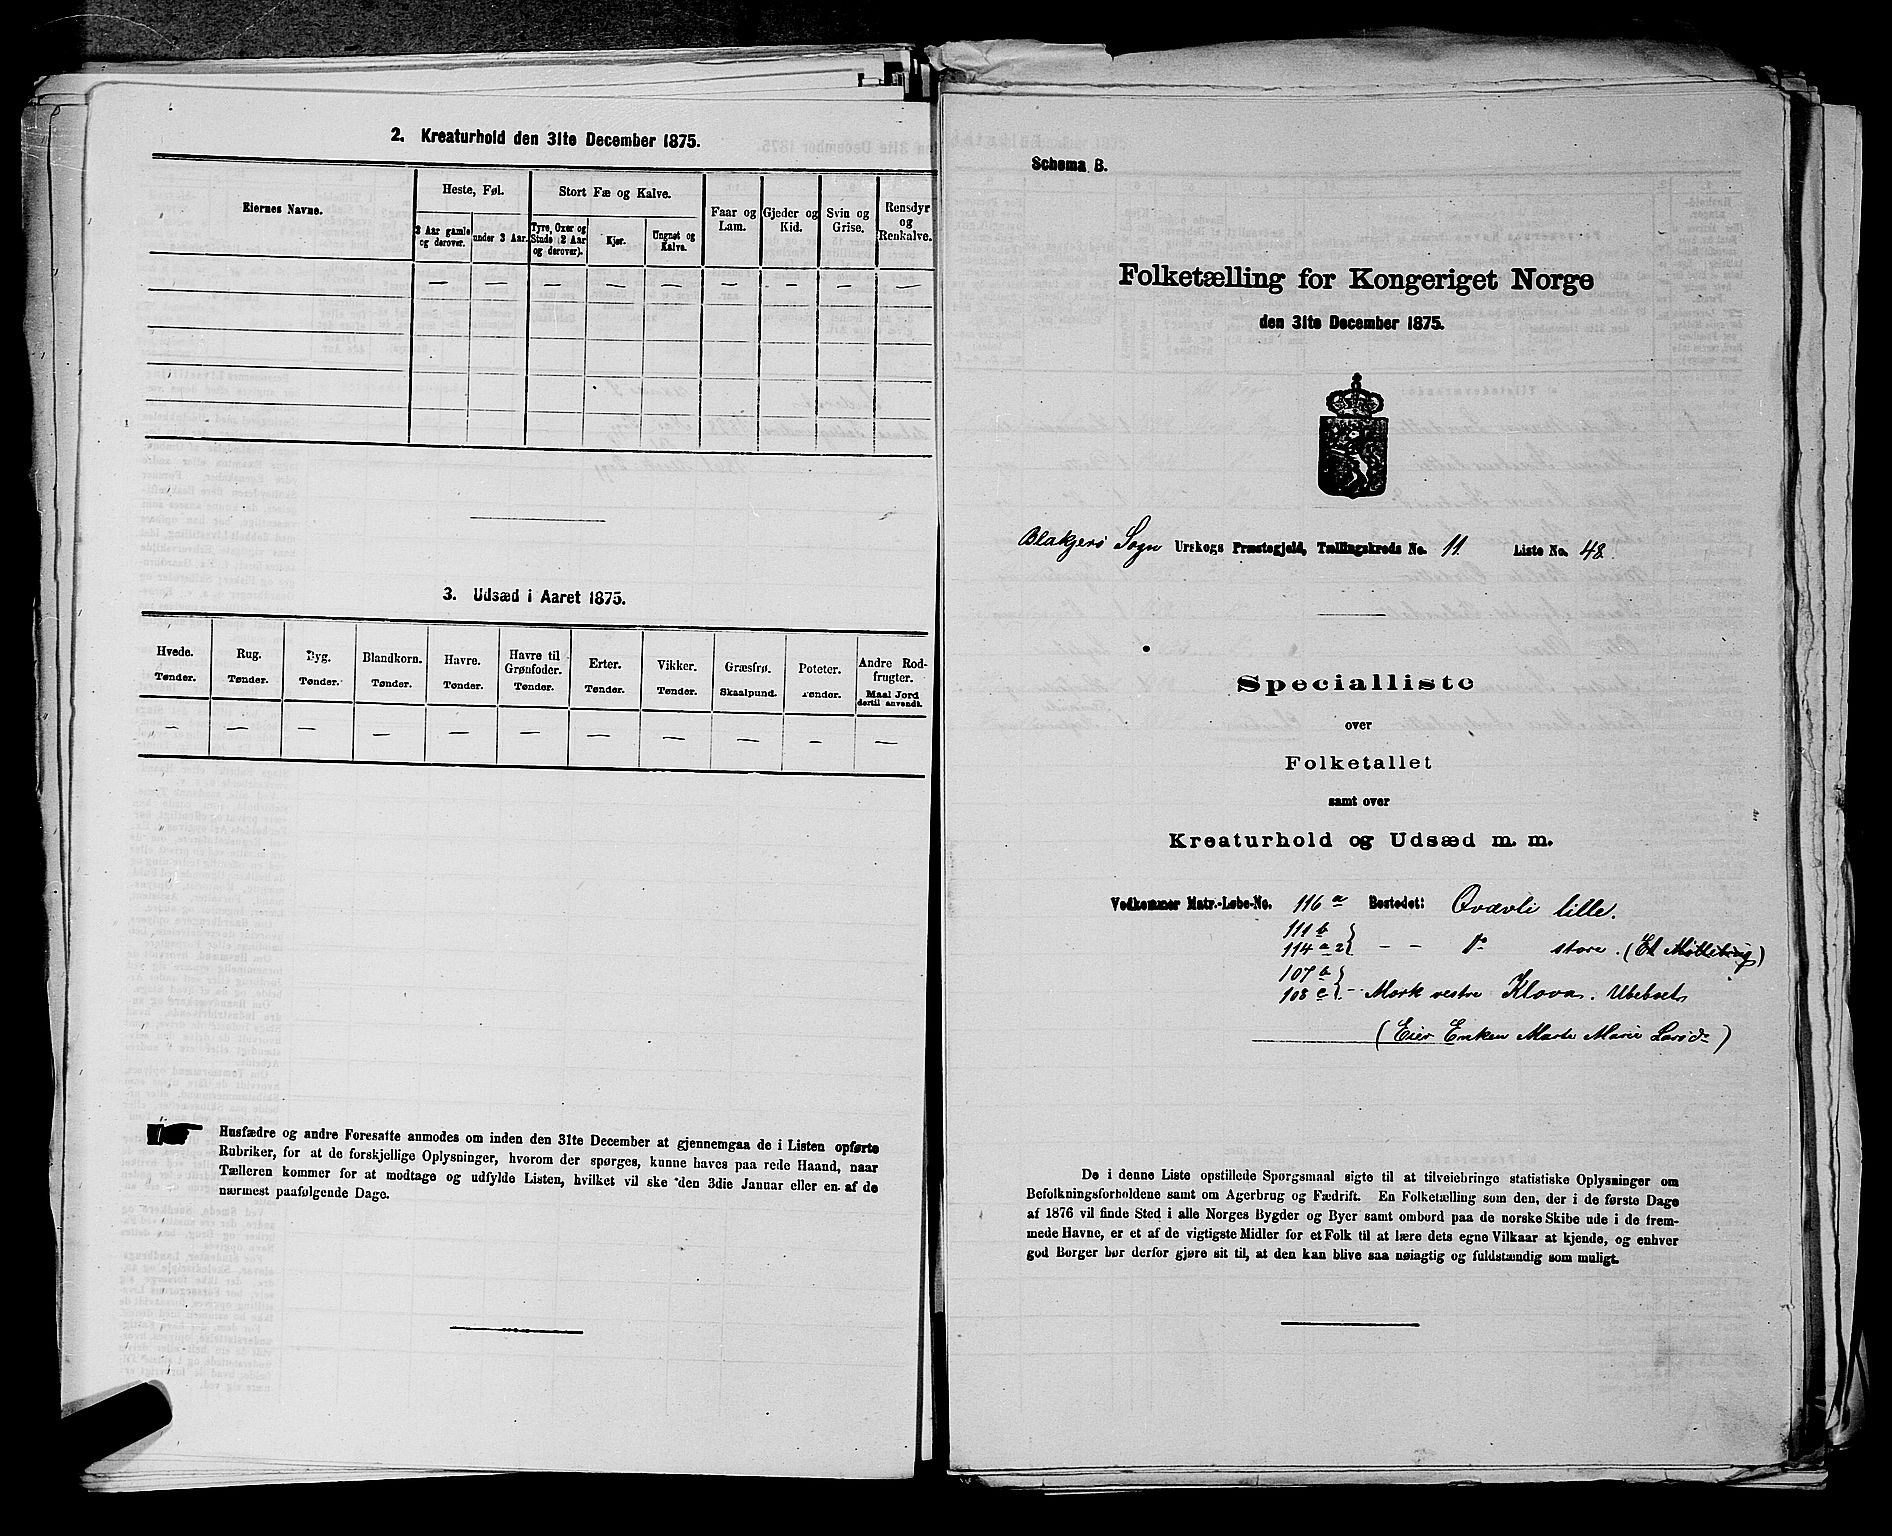 2. Kreaturhold den 31te December 1875.
Eiernes Navne.
Heste, Føl.
Stort Fæ og Kalve.
Faar og Lam.
Gjeder og Kid.
Svin og Grise.
Rensdyr og Renkalve.
3 Aar gamle og derover.
under 3 Aar.
Tyre, Oxer og Stude (2 Aar og derover).
Kjør.
Ungnøt og Kalve.
— — — — — — — — —
3. Udsæd i Aaret 1875.
Hvede. Rug. Byg. Blandkorn. Havre. Havre til Grønfoder. Erter. Vikker. Græsfrø. Poteter. Andre Rodfrugter.
Tønder. Tønder. Tønder. Tønder. Tønder. Tønder. Tønder. Tønder. Skaalpund. Tønder. Maal Jord dertil anvendt.
— — — — — — — — — — —
Husfædre og andre Foresatte anmodes om inden den 31te December at gjennemgaa de i Listen opførte
Rubriker, for at de forskjellige Oplysninger, hvorom der spørges, kunne haves paa rede Haand, naar
Tælleren kommer for at modtage og udfylde Listen, hvilket vil ske den 3die Januar eller en af de
nærmest paafølgende Dage.
Schema B.
Folketælling for Kongeriget Norge
den 31te December 1875.
Blakjers Sogn Urskogs Præstegjeld, Tællingskreds No. 11 Liste No. 48
Specialliste
over
Folketallet
samt over
Kreaturhold og Udsæd m. m.
Vedkommer Matr.-Løbe-No. 116 a Bostedet: Qvævli lille.
111 b
114 a 2 — — do store. (Et Møllebrug)
107 b
108 c — Mork vestre Klova. Ubeboet
(Eier Enken Marte Marie Larsd.)
De i denne Liste opstillede Spørgsmaal sigte til at tilveiebringe statistiske Oplysninger om
Befolkningsforholdene samt om Agerbrug og Fædrift. En Folketælling som den, der i de første Dage
af 1876 vil finde Sted i alle Norges Bygder og Byer samt ombord paa de norske Skibe ude i de frem-
mede Havne, er et af de vigtigste Midler for et Folk til at lære dets egne Vilkaar at kjende, og enhver
god Borger bør derfor gjøre sit til, at den kan blive saa nøiagtig og fuldstændig som muligt.